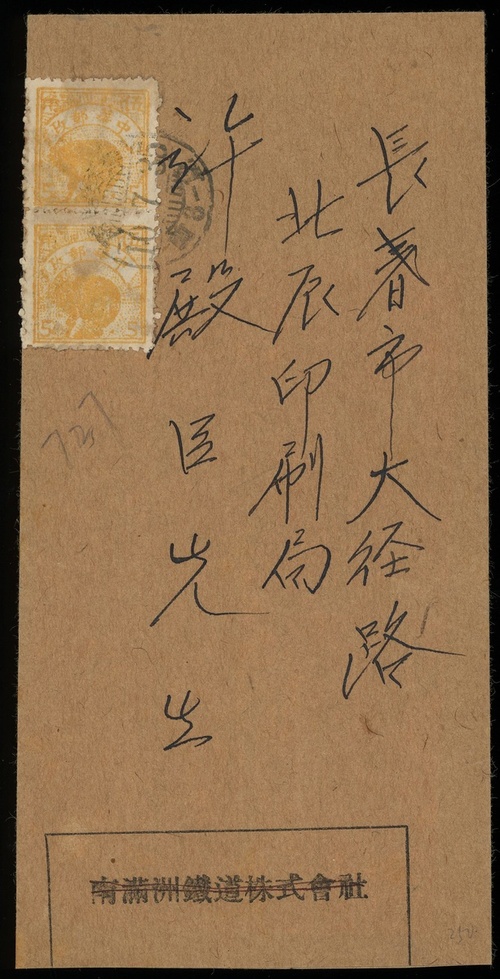 長春市大径路
北辰印刷局
許殿臣先生
南滿洲鐵道株式會社